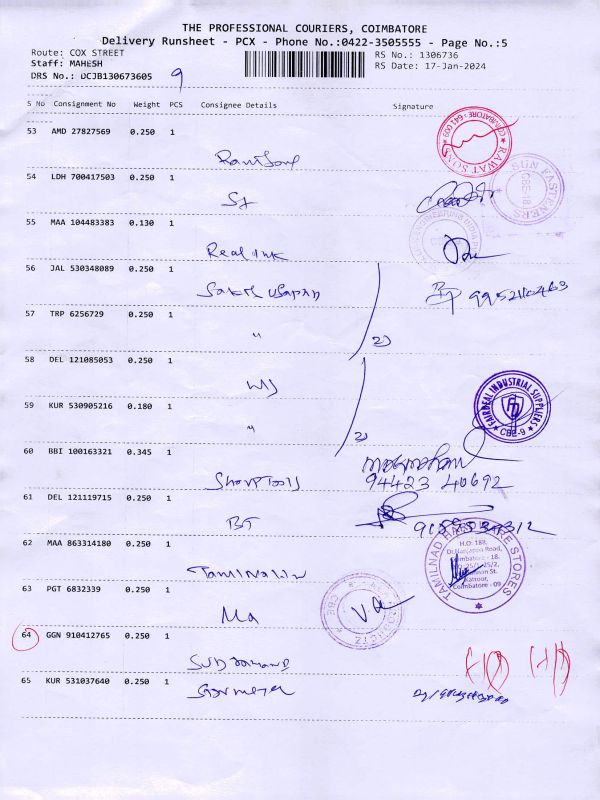 THE PROFESSIONAL COURIERS, COIMBATORE
Delivery Runsheet - PCX - Phone No.:0422-3505555 - Page No.:5
Route: COX STREET
RS No.: 1306736
Staff: MAHESH
RS Date: 17-Jan-2024
DRS No.: DCJB130673605 9
S No Consignment No Weight PCS Consignee Details Signature
53 AMD 27827569 0.250 1
RAWAT SONS
COIMBATORE - 641 009
54 LDH 700417503 0.250 1
SUN FASTENERS
CBE-18
55 MAA 104483383 0.130 1
Real ink
56 JAL 530348089 0.250 1
57 TRP 6256729 0.250 1
" 2)
58 DEL 121085053 0.250 1
59 KUR 530905216 0.180 1
" 2)
FAIRDEAL INDUSTRIAL SUPPLIERS
CBE-9
60 BBI 100163321 0.345 1
Sharp Tools
94423 40692
61 DEL 121119715 0.250 1
BT
62 MAA 863314180 0.250 1
Tamilnadu
TAMILNAD HARDWARE STORES
H.O: 188,
Coimbatore - 18.
Kattoor,
Coimbatore - 09
63 PGT 6832339 0.250 1
Ma
64 GGN 910412765 0.250 1
65 KUR 531037640 0.250 1